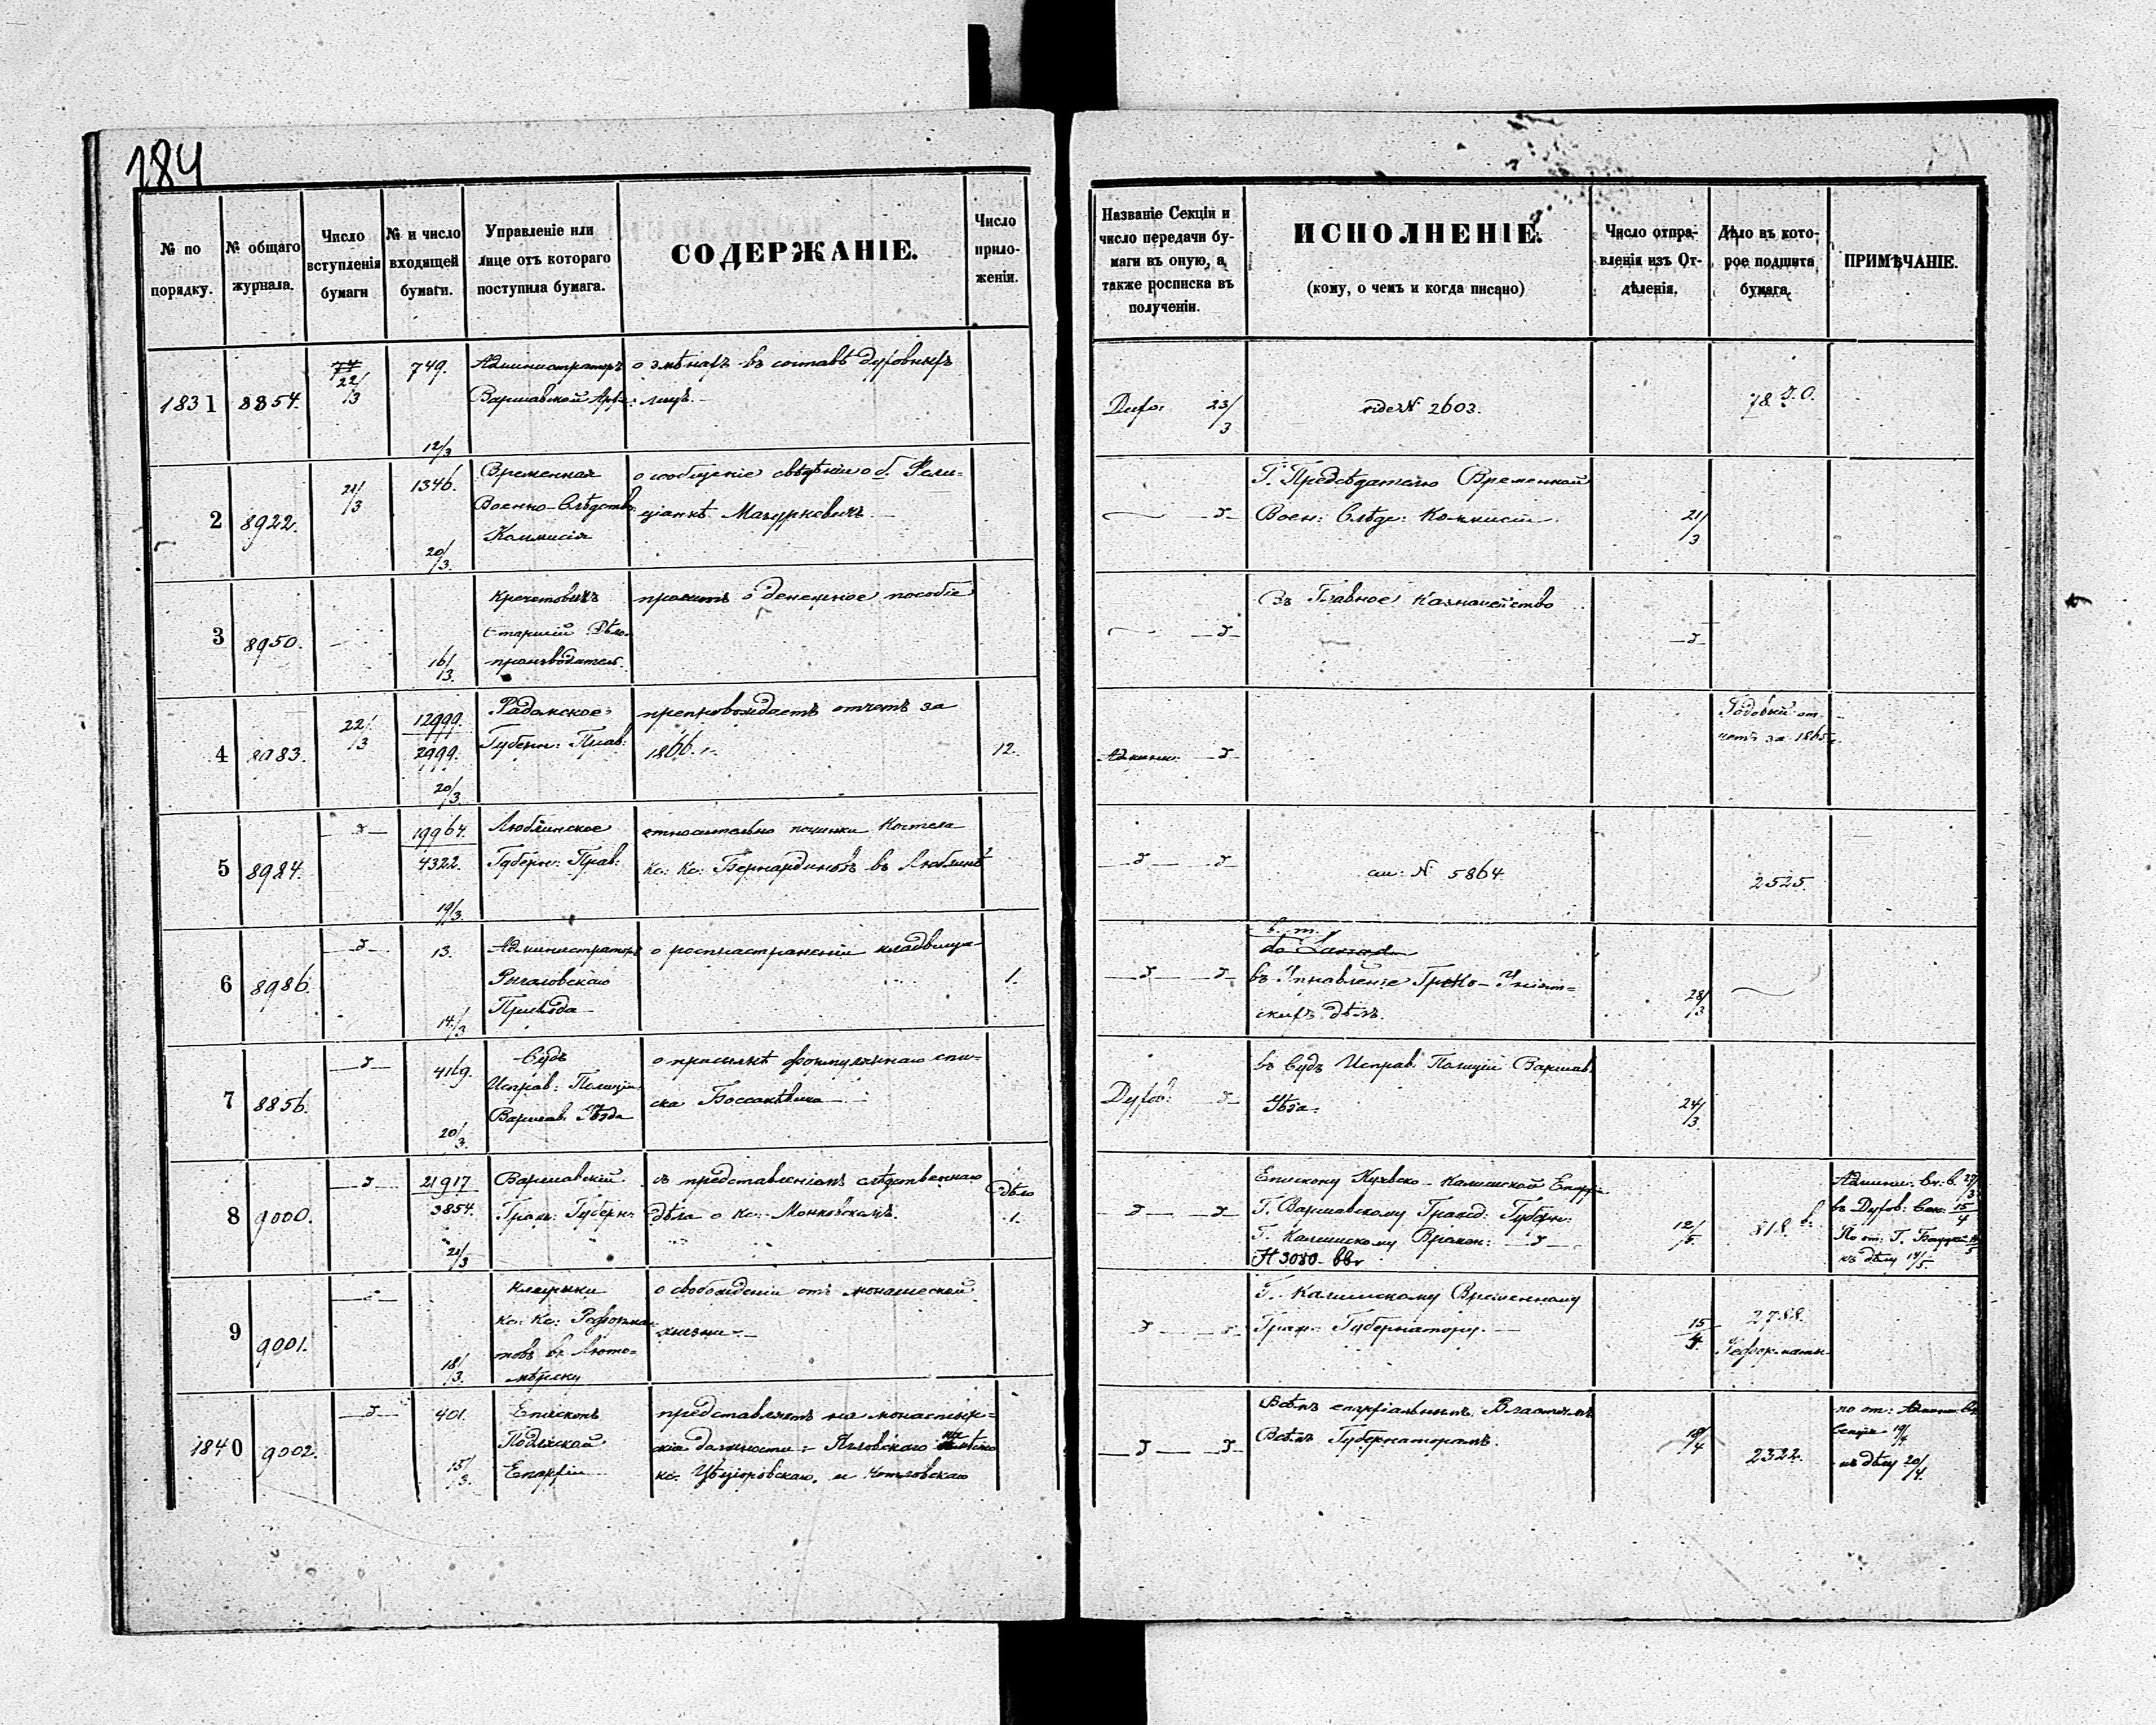 184
№ по порядку.
№ общаго журнала.
Число вступленія бумаги
№ и число входящей бумаги.
Управленіе или лице отъ котораго поступила бумага.
СОДЕРЖАНІЕ.
Число прило- женіи.
Названіе Секціи и число передачи бу- маги въ оную, а также росписка въ полученіи.
ИСПОЛНЕНІЕ.
(кому, о чемъ и когда писано)
Число отпра- вленія изъ От- дѣленія.
Дѣло въ кото- рое подшита бумага.
ПРИМѢЧАНІЕ.
1831 8854. 22/3 749. 12/3
Администраторъ
Варшавской Арх:
о змѣнахъ въ составѣ духовныхъ
лицъ.
Духо: 23/3
vide N 2603.
78
2 8922. 21/3 1346. 20/3
Временная
Военно-Слѣдств:
Коммисія
о сообщеніе свѣдѣніи об. Фели-
ціанкѣ Мазуркевичъ
Г. Предсѣдателю Временной
Воен: Слѣд: Коммисіи.
21/3
3 8950. 16/3
Кречетовичъ
Старшій Дѣло-
производитель.
проситъ о денежное пособіе
Въ Главное Казначейство
4 8983. 22/3 12999. 2999. 20/3
Радомское
Губерн: Прав:
препровождаетъ отчетъ за
1866 г.
12.
Админ:
Годовый от-
четъ за 1865 г.
5 8984. 19964. 4322. 19/3
Люблинское
Губерн: Прав:
относительно починки Костела
Кс: Кс: Бернардиновъ въ Люблинѣ
см: N 5864
2525.
6 8986. 13. 14/3
Администраторъ
Прихода
о роспространеніи кладбища
1.
в. т.
въ Управленіе Греко-Уніат-
скихъ дѣлъ.
28/3
7 8856. 4169. 20/3
Судъ
Исправ: Полиціи
Варшав. Уѣзда
о присылкѣ формулярнаго спи-
ска
Духов:
въ Судъ Исправ. Полиціи Варшав.
Уѣзда.
24/3
8 9000. 21917 3854. 21/3
Варшавскій
Граж: Губерн:
съ представленіемъ слѣдственнаго
дѣла о Кс: Монковскомъ.
дѣло
1.
Епископу Куявско-Калишской Епарх:
Г. Варшавскому Гражд: Губерн:
Г. Калишскому Времен:
N 3080
12/5
818
Админ:
въ Духов: Сек: 15/4
къ дѣлу 14/5.
9 9001. 18/3
Клерики
Кс: Кс: Реформа-
товъ въ Люто-
мѣрску
о свобожденіи отъ монашеской
жизни.
Г. Калишскому Временному
Граж: Губернатору.
15/4
2788.
Реформаты
1840 9002. 401. 15/3
Епископъ
Подляской
Епархіи
представляетъ на монастыр-
скія должности:
Всѣмъ епархіальнымъ Властямъ
Всѣмъ Губернаторамъ.
18/4
2322.
по от: Админ:
Секціи 19/4
къ дѣлу 20/4.